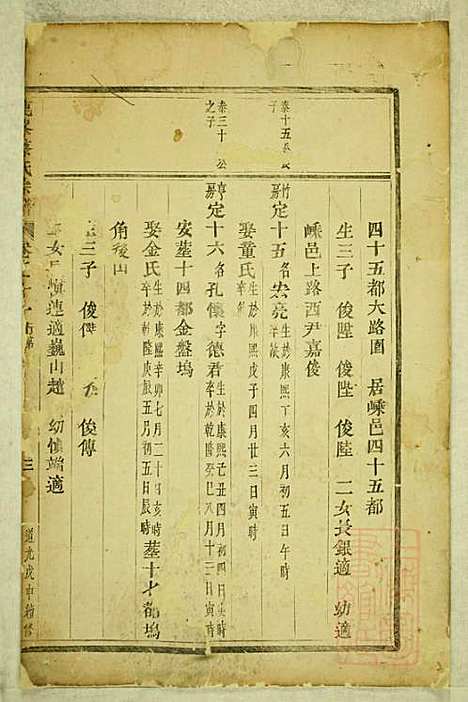 四十五都大路圍　居嵊邑四十五都
生三子　俊陞　俊陛　俊陸　二女長銀適　幼適
嵊邑上路西尹嘉俊
泰十五
之子
竹房
定十五名宏亮生於康熙丁亥六月初五日午時
娶童氏生於康熙戊子四月廿三日寅時
泰三十公
之子
亨房
定十六名孔懷字德君生於康熙己丑四月初四日
卒於乾隆癸巳八月十日寅時
安塟十四都金盤塢
娶金氏生於康熙辛卯七月二十日亥時
卒於乾隆庚戌五月初五日辰時
塟十都塢
角後山
三子　俊傑　俊傳
女適巍山趙　幼適
道光戊申續修